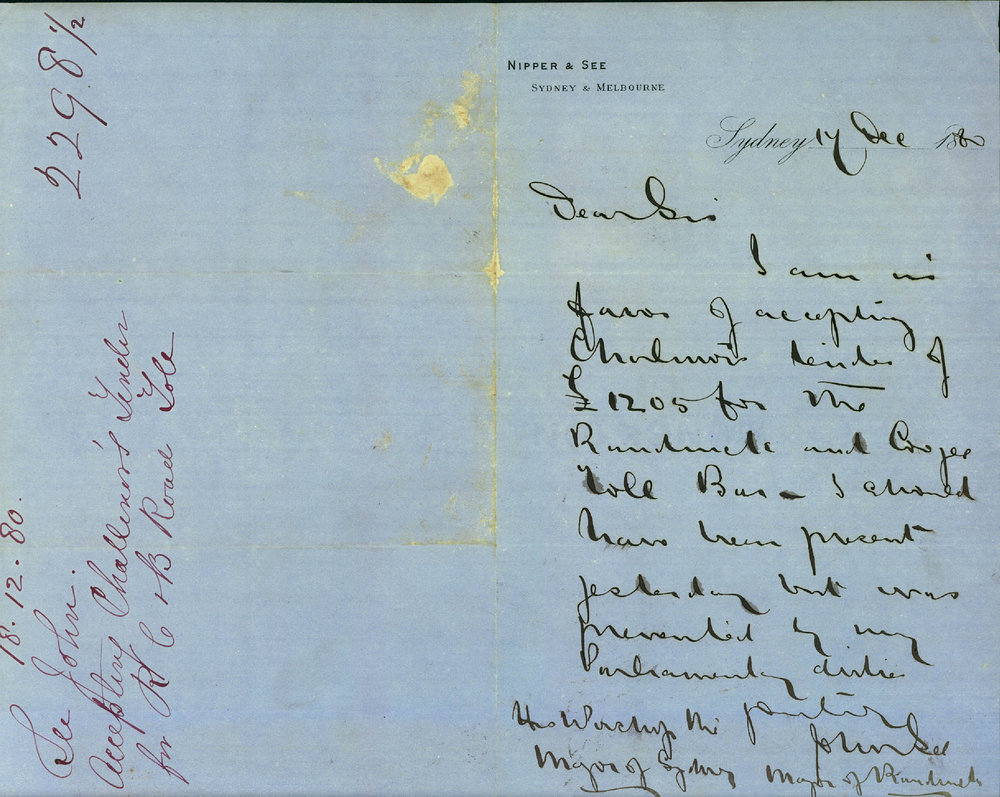 2298 1/2
18.12.80.
See John.
Accepting Challenor's Tender
for R C & B Road Tole
NIPPER & SEE
SYDNEY & MELBOURNE
Sydney 17 Dec 1880
Dear Sir
I am in
favor of accepting
tender of
£1205 for the
Randwick and Coogee
Toll Bar - I should
have been present
yesterday but was
prevented by my
Parliamentary duties
yours truly
John See
Mayor of Randwick
His Worship the
Mayor of Sydney